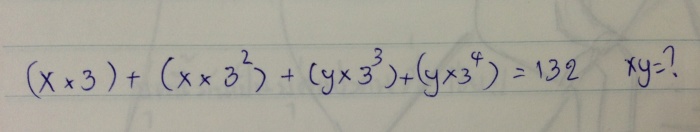 (x × 3) + (x × 3²) + (y × 3³) + (y × 3⁴) = 132 xy=?